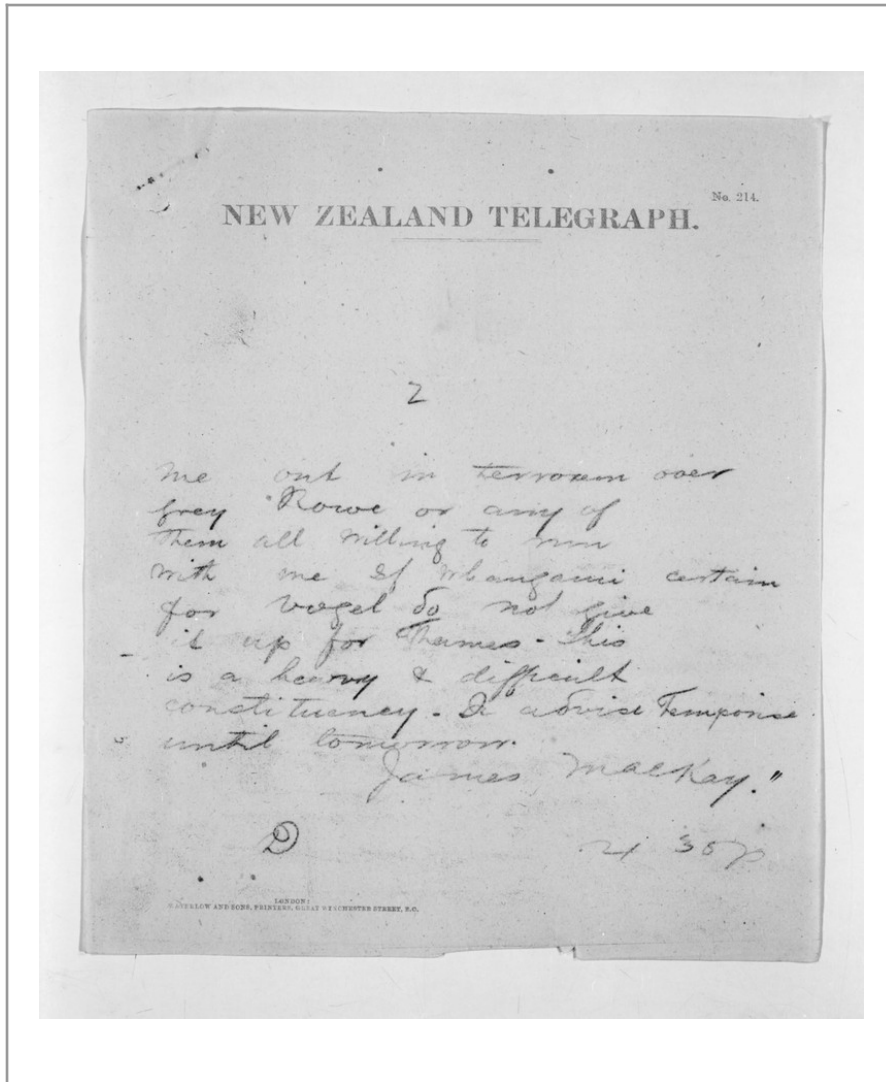 No. 214.
NEW ZEALAND TELEGRAPH.
2
me out in terrorem over
Grey Rowe or any of
them all willing to run
with me If Whanganui certain
for Vogel do not give
it up for Thames - This
is a heavy & difficult
constituency - I advise Temporise
until tomorrow.
James Mackay."
D
4 30 p
LONDON:
WATERLOW AND SONS, PRINTERS, GREAT WINCHESTER STREET, E.C.